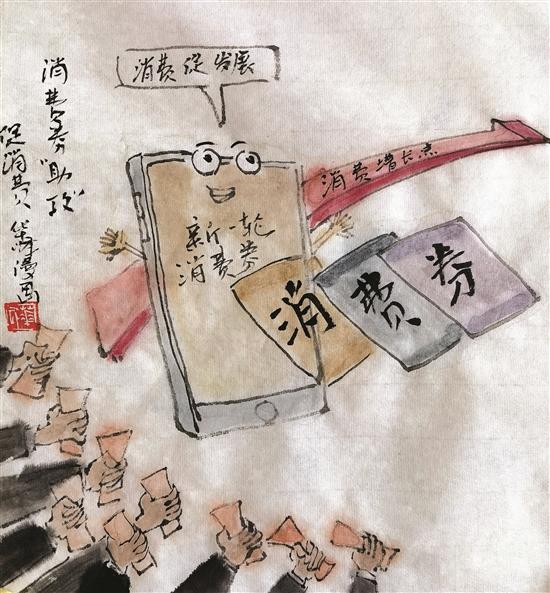 消费促发展
消费券“助攻”
促消费
漫画
消费增长点
新一轮
消费券
消费券